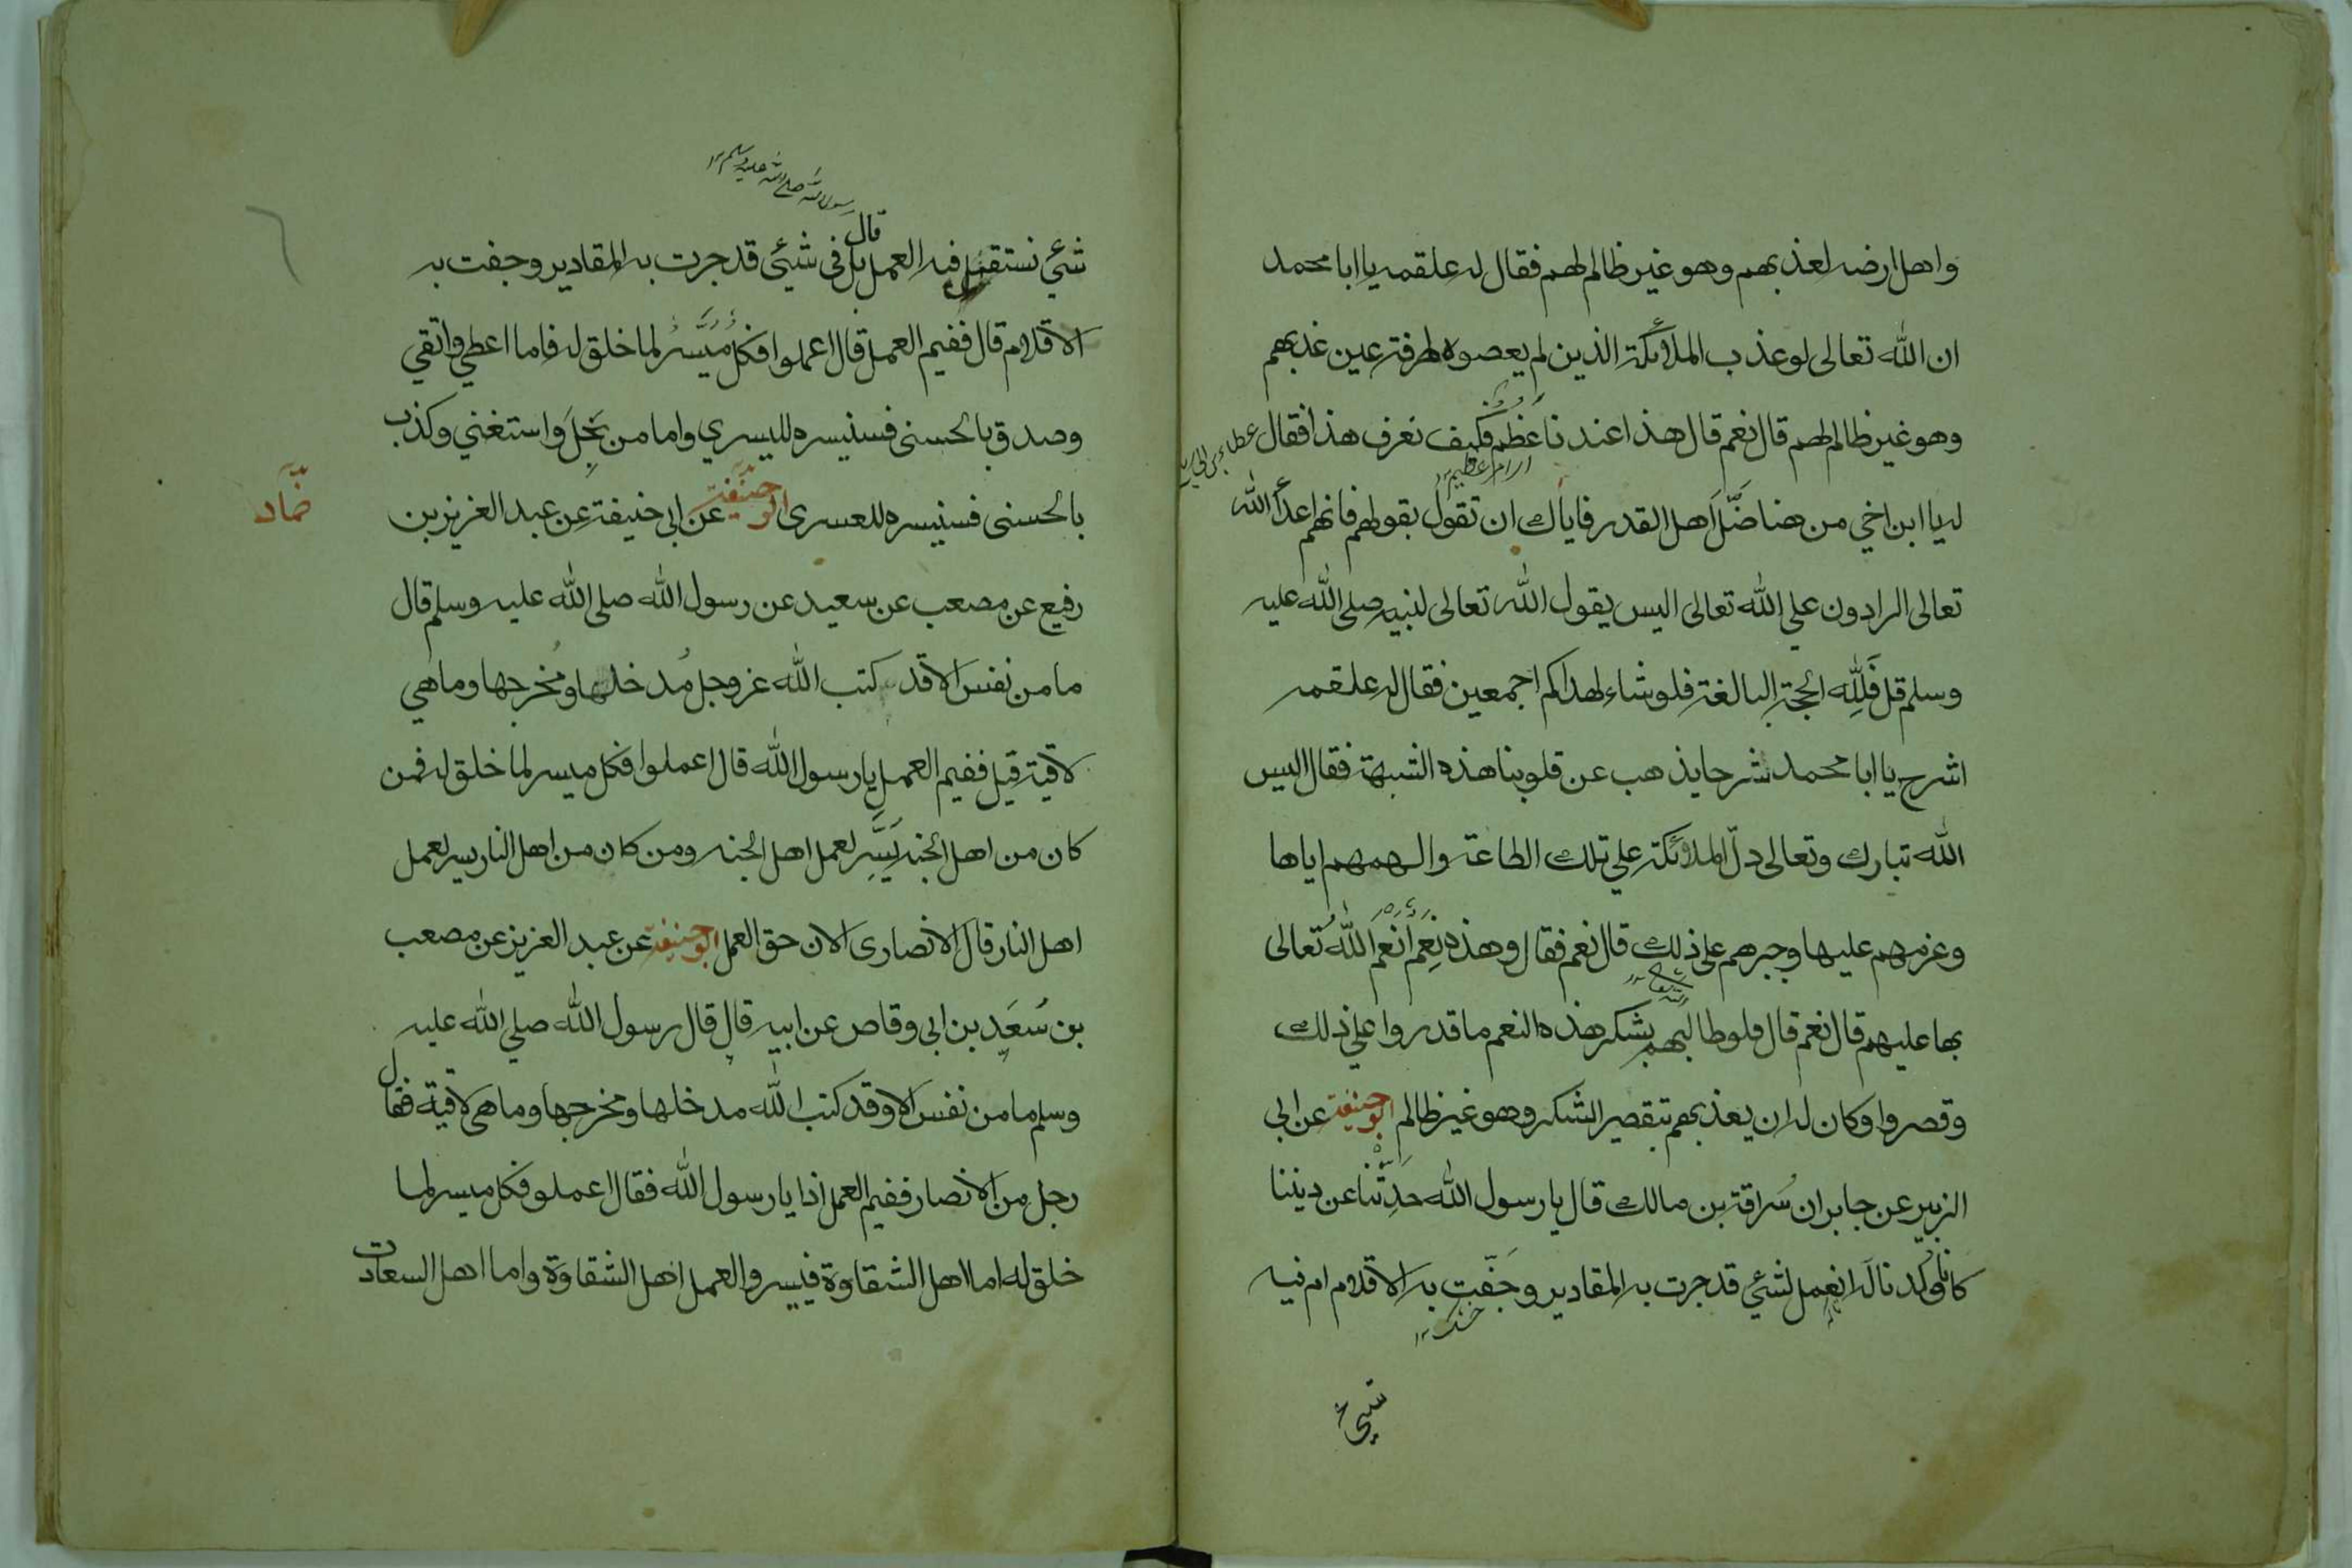 واهل ارضه لعذبهم وهو غير ظالم لهم فقال له علقمه يا ابا محمد
ان الله تعالى لو عذب الملائكة الذين لم يعصوه طرفة عين عذبهم
وهو غير ظالم لهم قال نعم قال هذا عندنا عَظُم فكيف نعرف هذا فقال
عطاء بن ابي رباح
امر عظيم ۱۲
له يا ابن اخي من هنا ضَلَّ اهل القدر فاياك ان تقول بقولهم فانهم اعداُ الله
تعالى الرادون علي الله تعالى اليس يقول الله تعالى لنبيه صلى الله عليه
وسلم قل فَلِلّه الحجة البالغة فلو شاء لهداكم اجمعين فقال له علقمه
اشرح يا ابا محمد شرحا يذهب عن قلوبنا هذه الشبهة فقال اليس
الله تبارك وتعالى دلّ الملائكة علي تلك الطاعة والهمهم اياها
وعزمهم عليها وجبرهم على ذلك قال نعم فقال وهذه نِعَم اَنعَم اللهُ تعالى
بها عليهم قال نعم قال فلو طالبهم بشكر هذه النعم ما قدروا علي ذلك
وقصروا وكان له ان يعذبهم بتقصير الشكر وهو غير ظالمٍ ابو حنيفة عن ابي
الزبير عن جابر ان سُراقة بن مالك قال يا رسول الله حَدِّثنا عن ديننا
كانا وُلِدنا لَه انعمل لشئي قد جرت به المقادير وجَفّت به الاقلام ام فيه
خشك ۱۲
شيئ
رسول الله صلى الله عليه وسلم ۱۲
قال
شئي نستقبل فيه العمل بل في شيئي قد جرت به المقادير وجفت به
الاقلام قال ففيم العمل قال اعملوا فكلٌ مُيَسَّرٌ لما خلق له فاما اعطي واتقي
وصدق بالحسنى فسنيسره لليسري واما من بَخِلَ واستغني وكذب
بالحسنى فسنيسره للعسرى ابو حنيفة عن ابي حنيفة عن عبد العزيز بن
حَمّاد
رفيع عن مصعب عن سعيد عن رسول الله صلى الله عليه وسلم قال
ما من نفس الا قد كتب الله عز وجل مُدخلها ومُخرجها وما هي
لاقية قيل ففيم العمل يا رسول الله قال اعملوا فكل ميسر لما خلق له فمن
كان من اهل الجنه يَسَّرِ لعمل اهل الجنه ومن كان من اهل النار يسر لعمل
اهل النار قال الانصاري الان حق العمل ابو حنيفة عن عبد العزيز عن مصعب
بن سُعَد بن ابي وقاص عن ابيه قال قال رسول الله صلي الله عليه
وسلم ما من نفس الا وقد كتب الله مدخلها ومخرجها وما هى لاقية فقال
رجل من الانصار ففيم العمل اذا يا رسول الله فقال اعملو فكل ميسر لما
خلق له اما اهل الشقاوة فييسروا لعمل اهل الشقاوة واما اهل السعادت